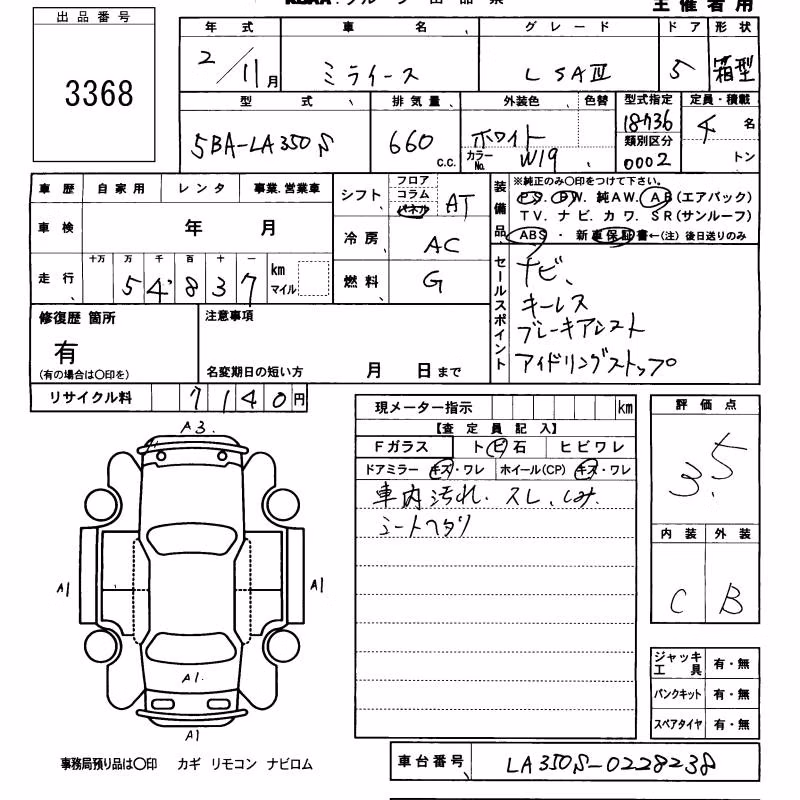 主催者用
出品番号
3368
年式 車名 グレード ドア 形状
2/11月 ミライース L SAⅢ 5 箱型
型式 排気量 外装色 色替 型式指定 定員・積載
5BA-LA350S 660 c.c. ホワイト カラーNo. W19 18736 類別区分 0002 4名 トン
車歴 自家用 レンタ 事業.営業車
車検 年 月
走行 十万 万 千 百 十 一 km マイル
54837
シフト フロア コラム パネル AT
冷房 AC
燃料 G
装備品 ※純正のみ〇印をつけて下さい。
P.S. P.W. 純AW. AB(エアバック)
TV. ナビ. カワ. SR(サンルーフ)
ABS ・ 新車保証書←(注)後日送りのみ
セールスポイント
ナビ、
キーレス
ブレーキアシスト
アイドリングストップ
修復歴 箇所
有
(有の場合は〇印を)
注意事項
名変期日の短い方 月 日まで
リサイクル料 7140円
現メーター指示 km
【査定員記入】
Fガラス トビ石 ヒビワレ
ドアミラー キズ・ワレ ホイール(CP) キズ・ワレ
車内汚れ.スレ、しみ.
シートヘタリ
評価点
3.5
内装 外装
C B
A3.
A1
A1
A1.
A1
ジャッキ工具 有・無
パンクキット 有・無
スペアタイヤ 有・無
事務局預り品は〇印 カギ リモコン ナビロム
車台番号 LA350S-0228238